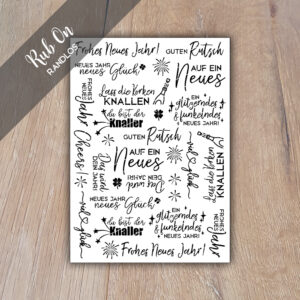 Rub On
RANDLOS
Frohes Neues Jahr!
GUTEN Rutsch
NEUES JAHR
neues Glück
AUF EIN
Neues
FROHES
NEUES
Jahr
Lass die Korken
KNALLEN
EIN
glitzerndes
& funkelndes
NEUES JAHR!
du bist der
Knaller
Cheers!
GUTEN Rutsch
AUF EIN
Neues
Das wird
DEIN JAHR
Das wird
DEIN JAHR
Lass die Korken
KNALLEN
NEUES JAHR
neues Glück
du bist der
Knaller
EIN
glitzerndes
& funkelndes
NEUES JAHR!
FROHES
NEUES
Jahr
Frohes Neues Jahr!